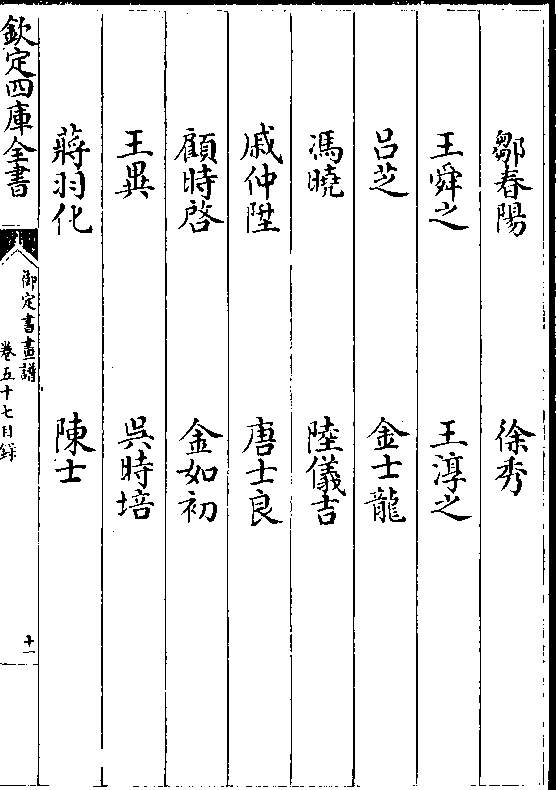 鄒春陽 徐秀
王舜之 王淳之
呂芝 金士龍
馮曉 陸儀吉
戚仲陞 唐士良
顧時啓 金如初
王㒷 吳時培
蔣羽化 陳士
欽定四庫全書
御定書畫譜
卷五十七目錄
十一